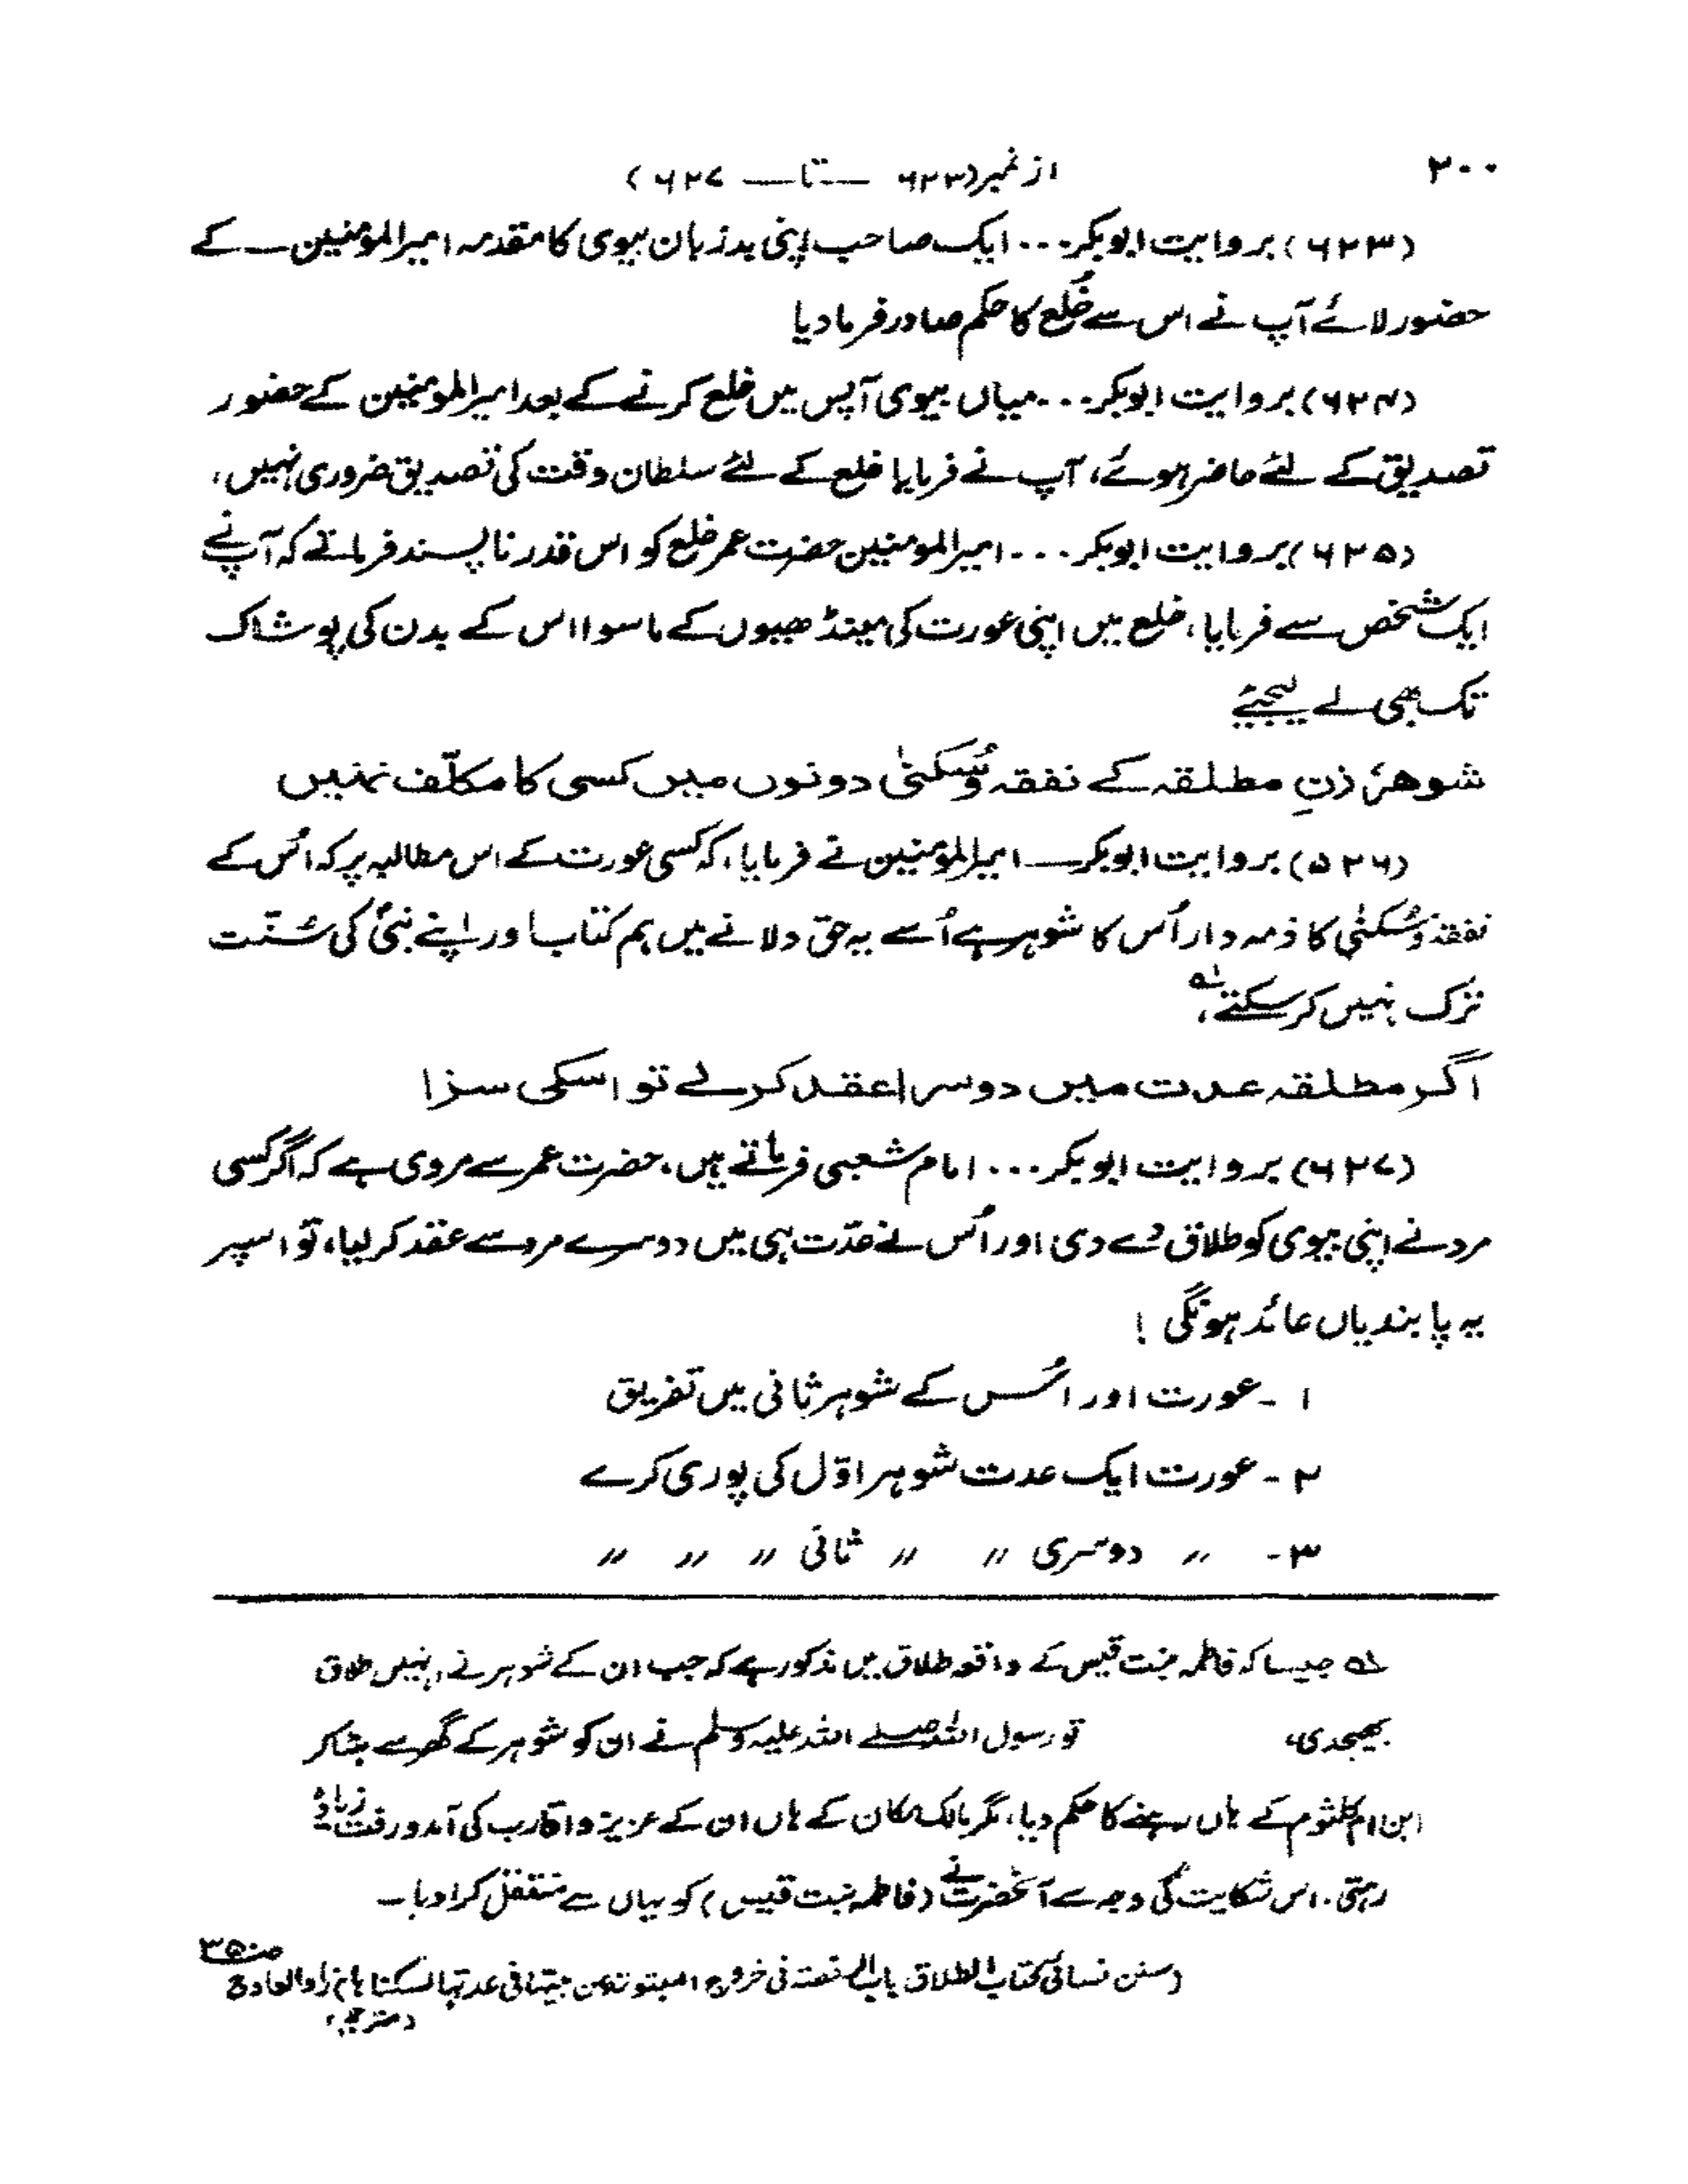 ۲۰۰
از نمبر (۶۲۳ — تا — ۶۲۷)
(۶۲۳) بروایت ابوبکر... ایک صاحب اپنی بدزبان بیوی کا مقدمہ امیرالمؤمنین کے
حضور لائے آپ نے اس سے خُلع کا حکم صادر فرما دیا
(۶۲۴) بروایت ابوبکر... میاں بیوی آپس میں خلع کرنے کے بعد امیرالمؤمنین کے حضور
تصدیق کے لئے حاضر ہوئے، آپ نے فرمایا خلع کے لئے سلطان وقت کی تصدیق ضروری نہیں،
(۶۲۵) بروایت ابوبکر... امیرالمومنین حضرت عمر خلع کو اس قدر ناپسند فرماتے کہ آپ نے
ایک شخص سے فرمایا، خلع میں اپنی عورت کی مینڈھیوں کے ماسوا اس کے بدن کی پوشاک
تک بھی لے لیجئے
شوھر زنِ مطلقہ کے نفقہ وسُکنیٰ دونوں میں کسی کا مکلّف نہیں
(۵۲۶) بروایت ابوبکر— امیرالمؤمنین نے فرمایا، کہ کسی عورت کے اس مطالبہ پر کہ اُس کے
نفقہ وسُکنیٰ کا ذمہ دار اُس کا شوہر ہے اُسے یہ حق دلانے میں ہم کتاب اور اپنے نبیؐ کی سُنّت
ترک نہیں کر سکتے، لہ
اگر مطلقہ عدت میں دوسرا عقد کرلے تو اسکی سزا
(۶۲۷) بروایت ابوبکر... امام شعبی فرماتے ہیں، حضرت عمر سے مروی ہے کہ اگر کسی
مرد نے اپنی بیوی کو طلاق دے دی اور اُس نے عدّت ہی میں دوسرے مرد سے عقد کر لیا، تو اسپر
یہ پابندیاں عائد ہونگی !
۱ - عورت اور اُس کے شوہر ثانی میں تفریق
۲ - عورت ایک عدت شوہر اوّل کی پوری کرے
۳ - ″ دوسری ″ ″ ثانی ″ ″ ″
لہ جیسا کہ فاطمہ بنت قیس کے واقعہ طلاق میں مذکور ہے کہ جب ان کے شوہر نے انہیں طلاق
بھیجدی، تو رسول اللہ صلے اللہ علیہ وسلم نے ان کو شوہر کے گھر سے ہٹا کر
ابن ام کلثوم کے ہاں رہنے کا حکم دیا، مگر مالک مکان کے ہاں ان کے عزیز و اقارب کی آمدورفت زیادہ
رہتی۔ اس شکایت کی وجہ سے آنحضرتؐ نے (فاطمہ بنت قیس) کو یہاں سے منتقل کرا دیا۔
(سنن نسائی کتاب الطلاق باب الرخصتہ فی خروج المبتوتۃ من بیتہا فی عدتہا لسکنا ہا) زاد المعاد
(مترجم)